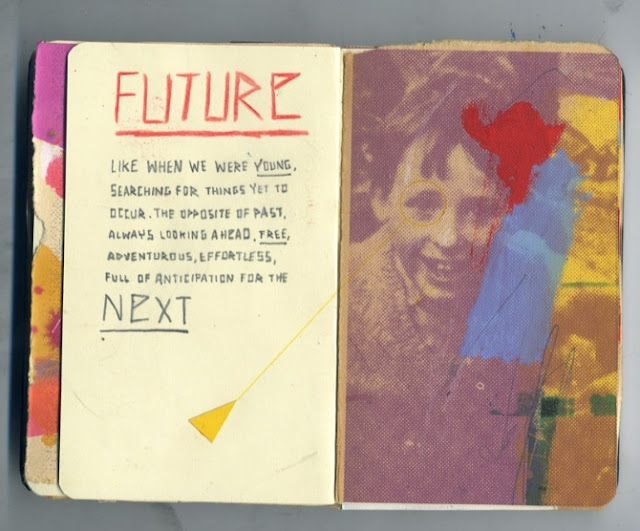 FUTURE
LIKE WHEN WE WERE YOUNG,
SEARCHING FOR THINGS YET TO
OCCUR. THE OPPOSITE OF PAST,
ALWAYS LOOKING AHEAD, FREE,
ADVENTUROUS, EFFORTLESS,
FULL OF ANTICIPATION FOR THE
NEXT